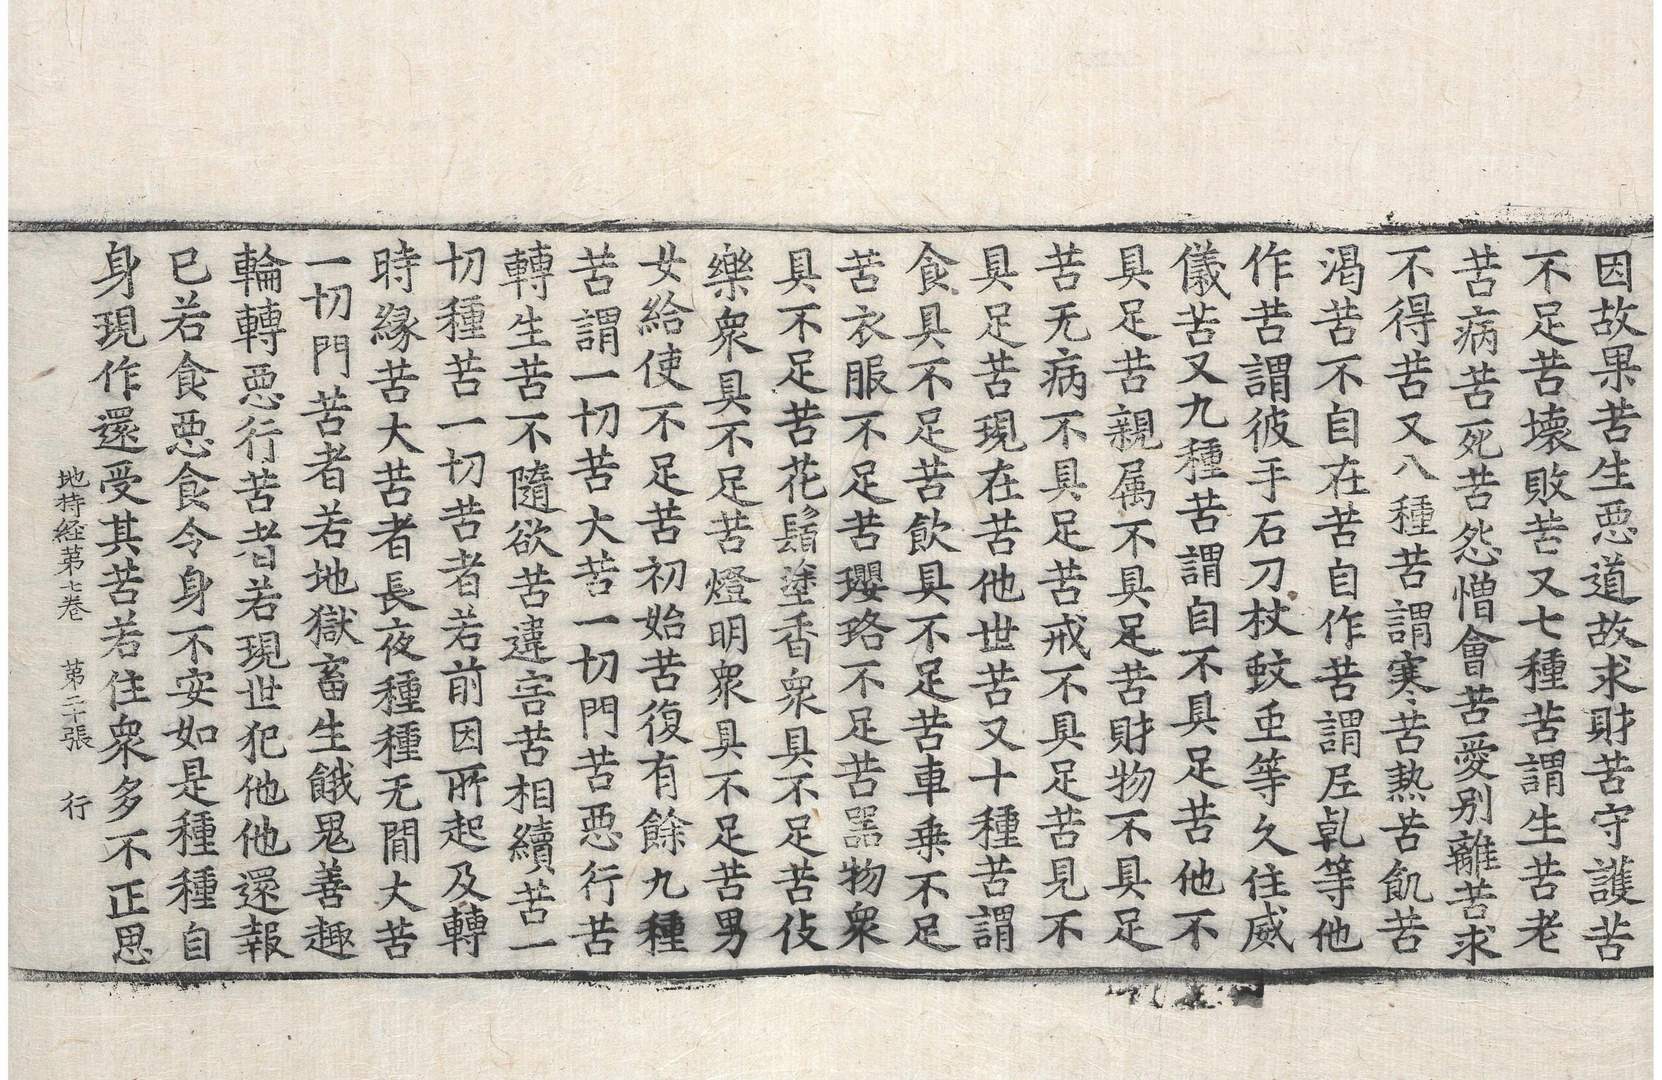 因故果苦生惡道故求財苦守護苦
不足苦壞敗苦又七種苦謂生苦老
苦病苦死苦怨憎會苦愛别離苦求
不得苦又八種苦謂寒苦熱苦飢苦
渇苦不自在苦自作苦謂尼乹等他
作苦謂彼手石刀杖蚊䖝等久住威
儀苦又九種苦謂自不具足苦他不
具足苦親属不具足苦財物不具足
苦无病不具足苦戒不具足苦見不
具足苦現在苦他世苦又十種苦謂
食具不足苦飲具不足苦車乗不足
苦衣服不足苦瓔珞不足苦器物衆
具不足苦花鬘塗香衆具不足苦伎
樂衆具不足苦燈明衆具不足苦男
女給使不足苦初始苦復有餘九種
苦謂一切苦大苦一切門苦惡行苦
轉生苦不隨欲苦違害苦相續苦一
切種苦一切苦者若前因所起及轉
時縁苦大苦者長夜種種无間大苦
一切門苦者若地獄畜生餓鬼善趣
輪轉惡行苦者若現世犯他他還報
已若食惡食令身不安如是種種自
身現作還受其苦若住衆多不正思
地持経第七卷　第二十張　行